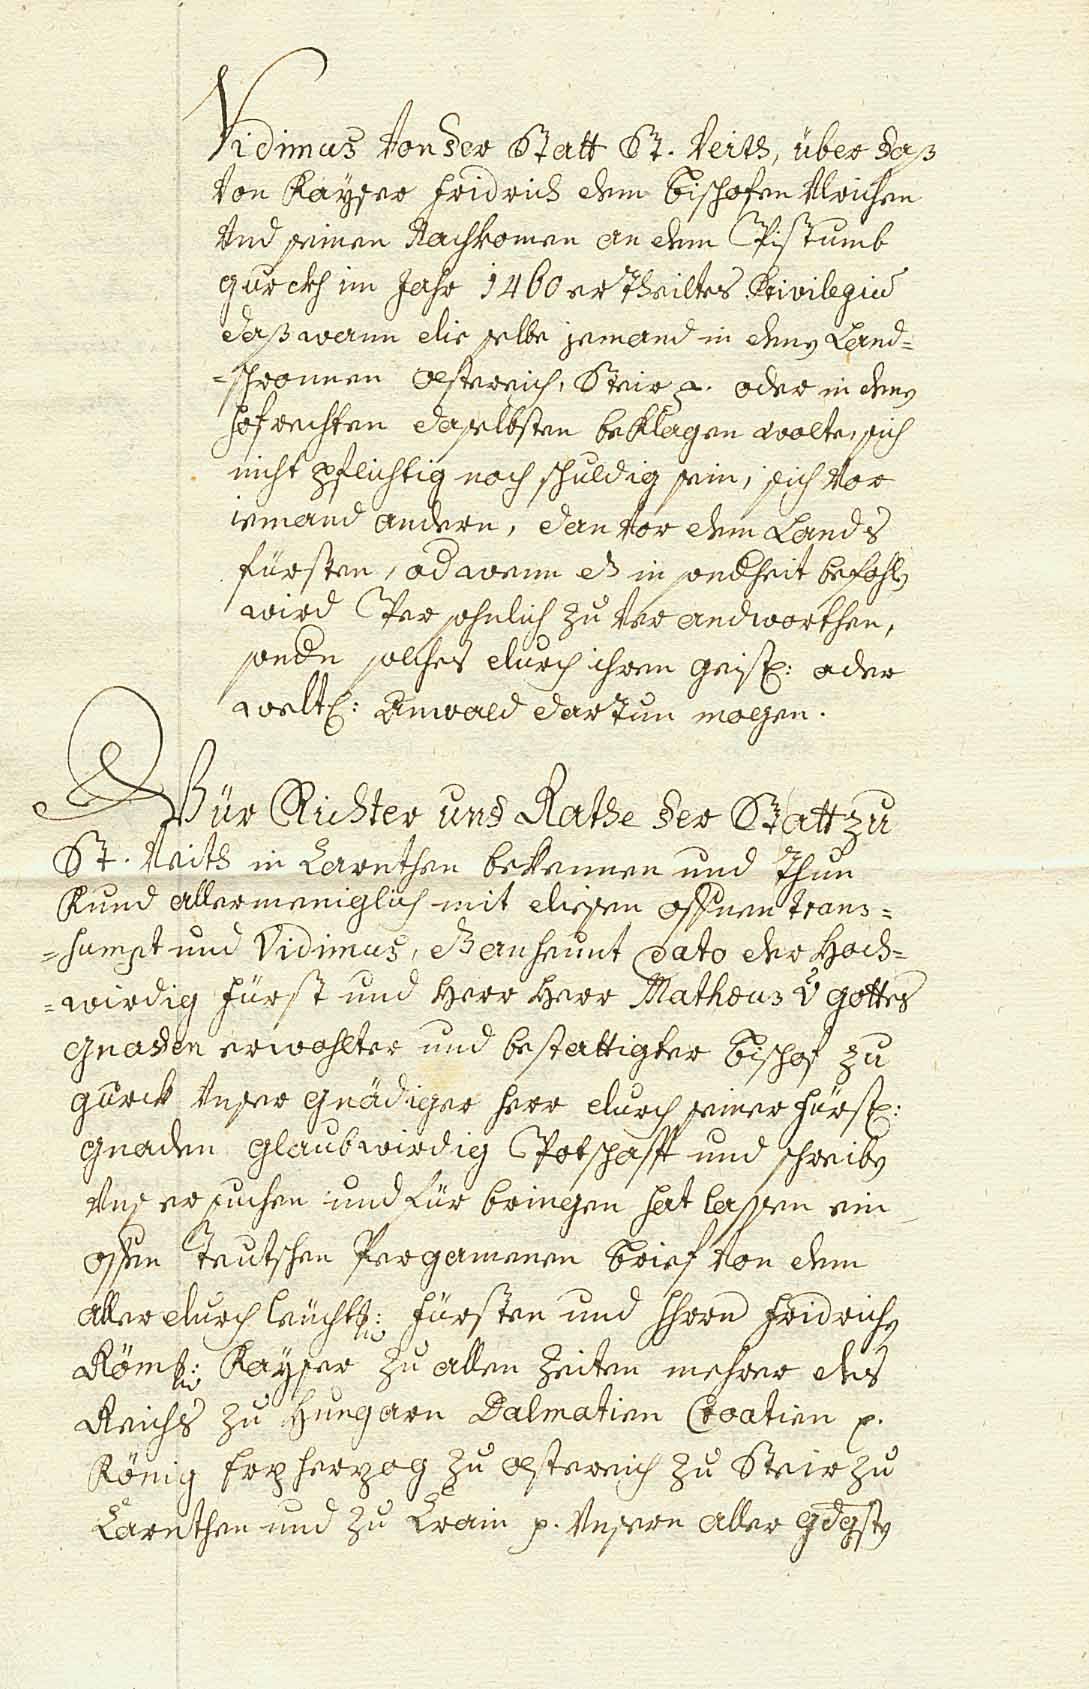 Vidimus von der Statt St. Veith, über daß
von Kayser Fridrich dem Bischofen Ulrichen
und seinen Nachkomen an dem Pistumb
Gurckh im Jahr 1460 ertheiltes Privilegiu
daß wann die selbe jemand in deny Land=
=schrannen Oesterreich, Steir p. oder in deny
Hofrechten daselbsten beklagen wolte, sich
nicht pflichtig noch schuldig sein, sich vor
iemand andern, dan vor dem Lands
fürsten, od wenn es in sondheit befohly
wird Persohnlich zu verandworthen,
sondn solches durch ihren geistl: oder
weltl: Anwald dartun mögen.
Wür Richter und Rathe der Statt zu
St. Veith in Carnthen bekennen und Thun
Kund allermeniglich mit diesen offnen trans=
=sumpt und Vidimus, das an heunt dato der Hoch=
=wirdig Fürst und Herr Herr Matheus v Gottes
Gnaden erwohlter und bestattigter Bischof zu
Gurck unser Gnädiger Herr durch seiner Fürstl:
Gnaden glaubwirdig Potschafft und schreiby
uns ersuchen und fürbringen hat lassen ein
offen Teutschen Pergamenen Brief von dem
aller durchleüchtig: Fürsten und Hhrn Fridrichy
Römis: Kayser zu allen Zeiten mehrer des
Reichs zu Hungarn Dalmatien Croatien p.
König Erzherzog zu Oesterreich zu Steir zu
Carnthen und zu Crain p. unsern aller gdgsty